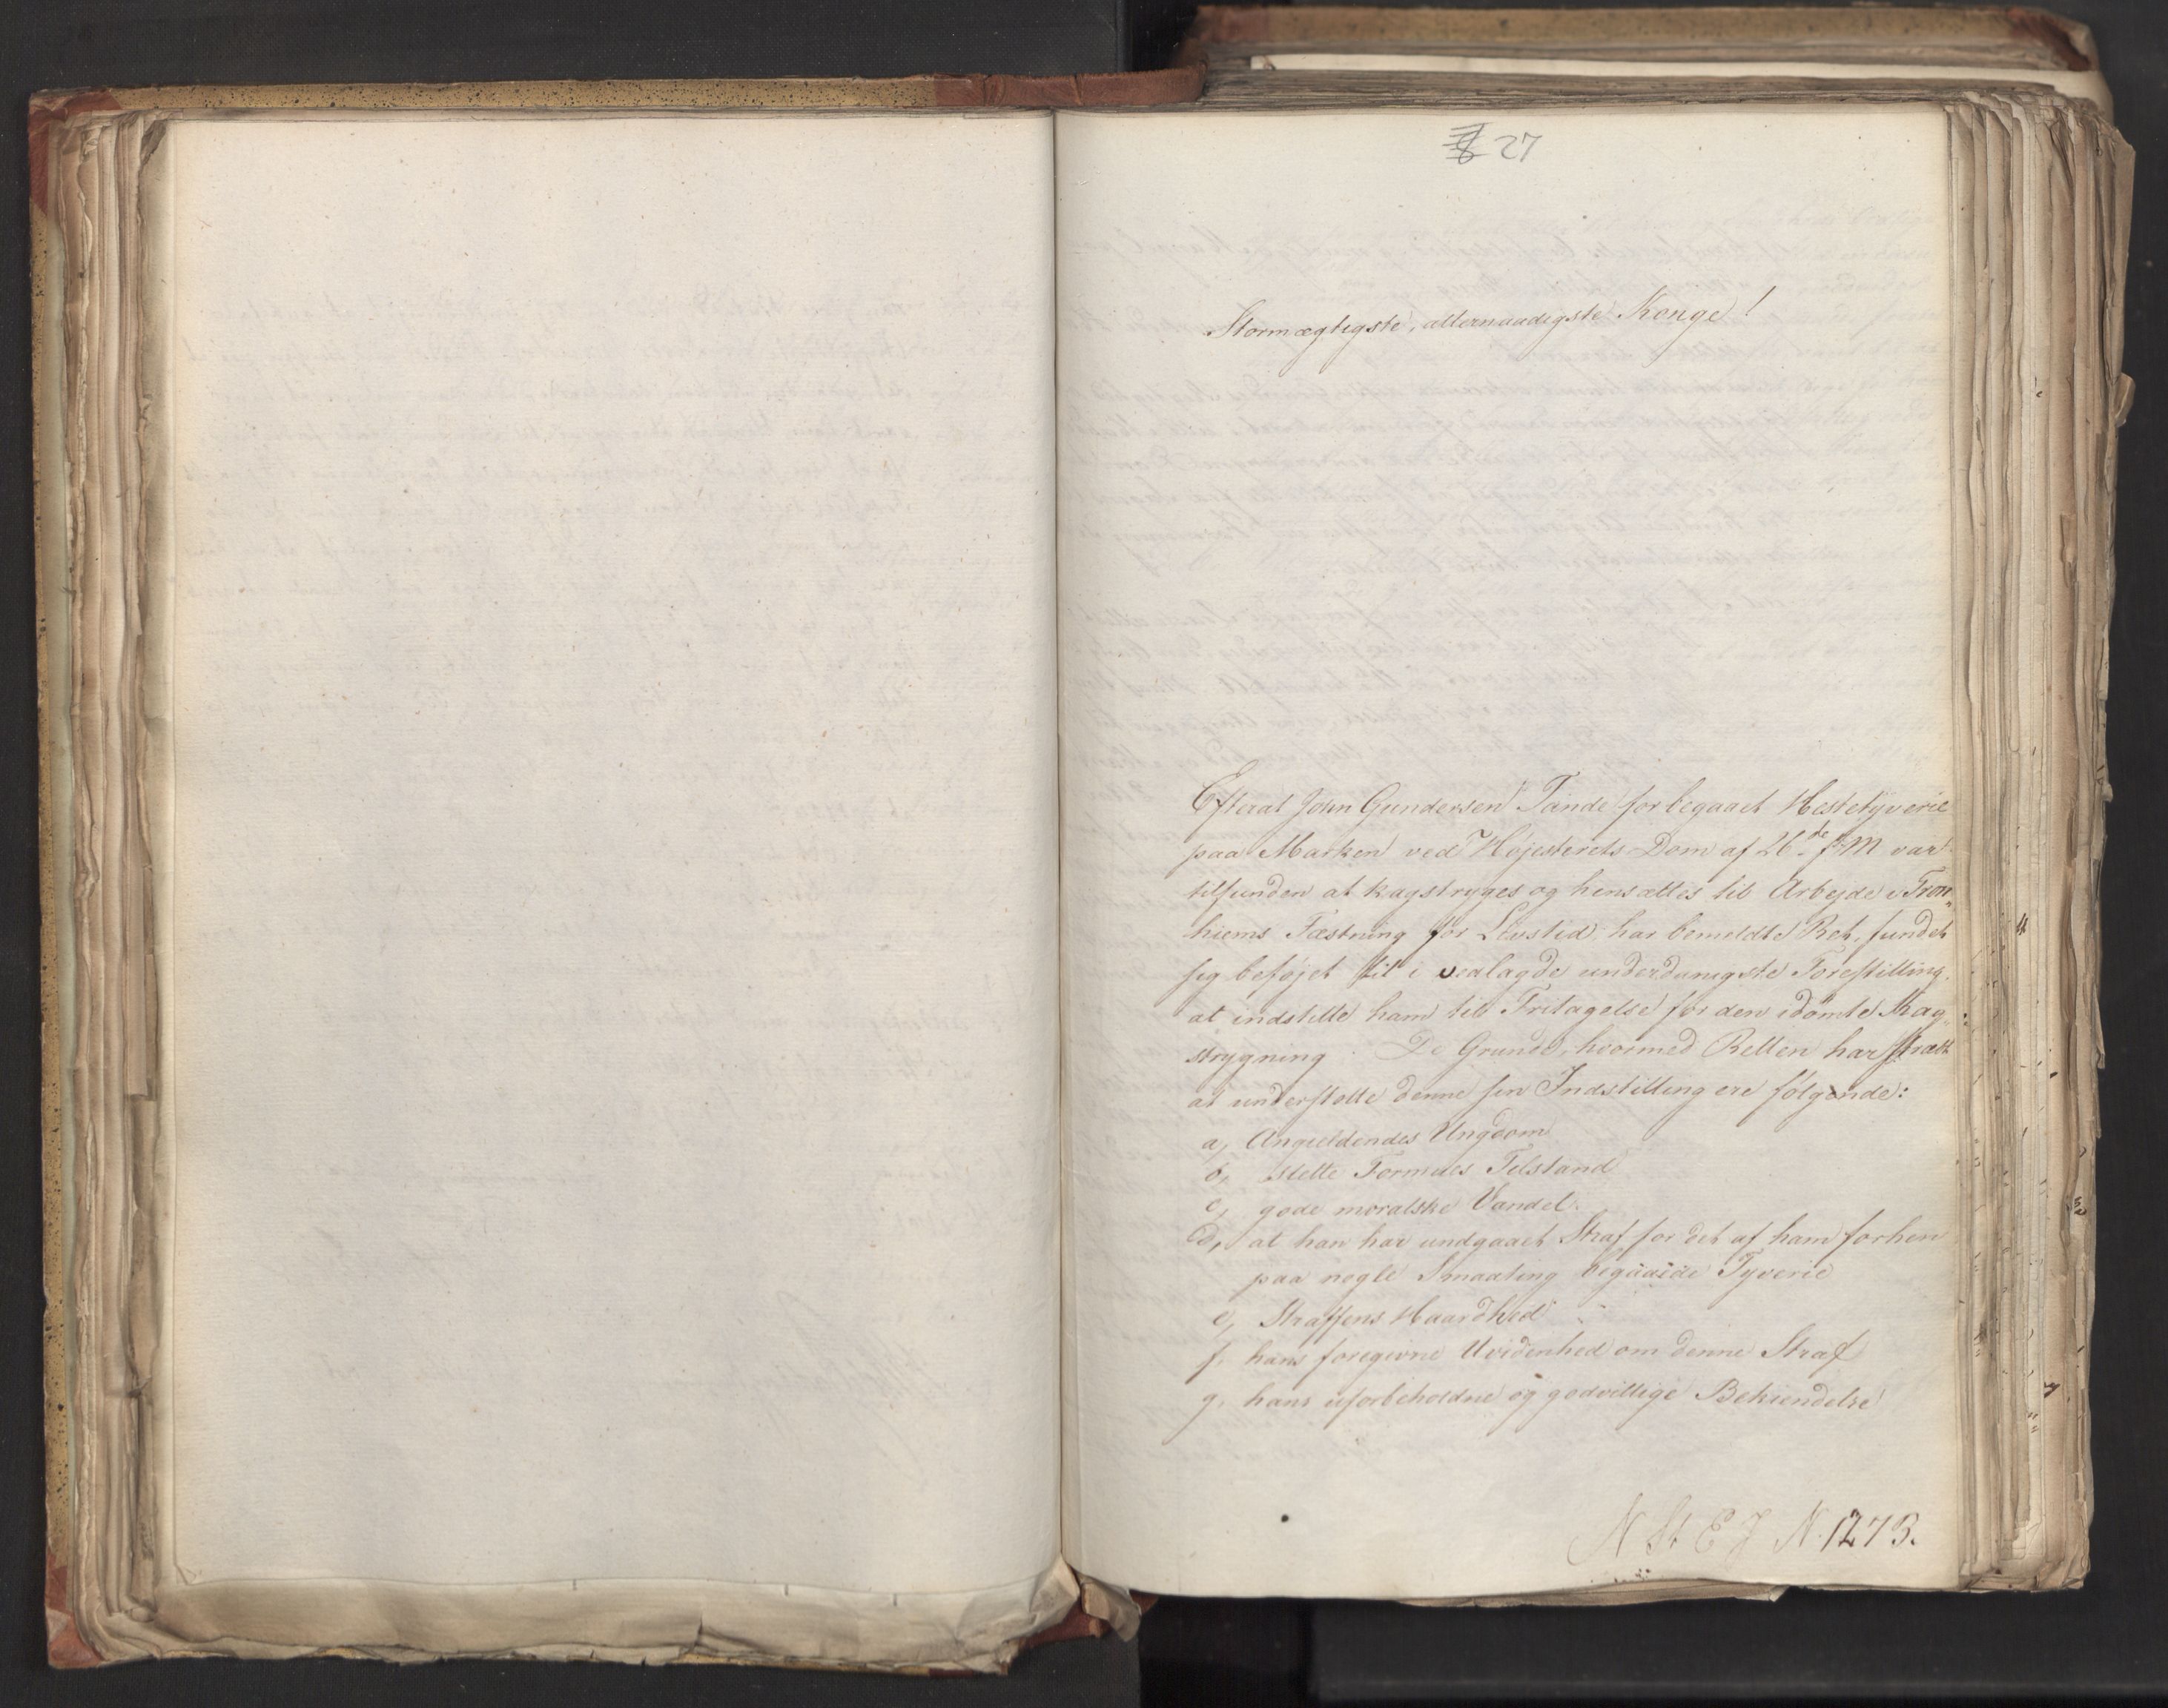 27
Stormægtigste, allernaadigste Konge!
Efterat John Gundersen Tande for begaaet Hestetyverie
paa Marken ved Højesterets Dom af 26de f M var
tilfunden at kagstryges og hensættes til Arbejde i Tron„
hiems Fæstning for Livstid, har bemeldte Ret, fundet
sig beføjet til i vedlagde underdanigste Forestilling,
at indstille ham til Fritagelse for den idømte Kag„
strygning. De Grunde, hvormed Retten har stræbt
at understøtte denne sin Indstilling ere følgende:
a, Angieldendes Ungdom
b, slette Formues Tilstand
c, gode moralske Vandel.
d, at han har undgaaet Straf for det af ham forhen
paa nogle Smaating begaaede Tyverie
e, Straffens Haardhed
f, hans foregivne Uvidenhed om denne Straf
g, hans uforbeholdne og godvillige Bekiendelse
N St E J N. 1273.